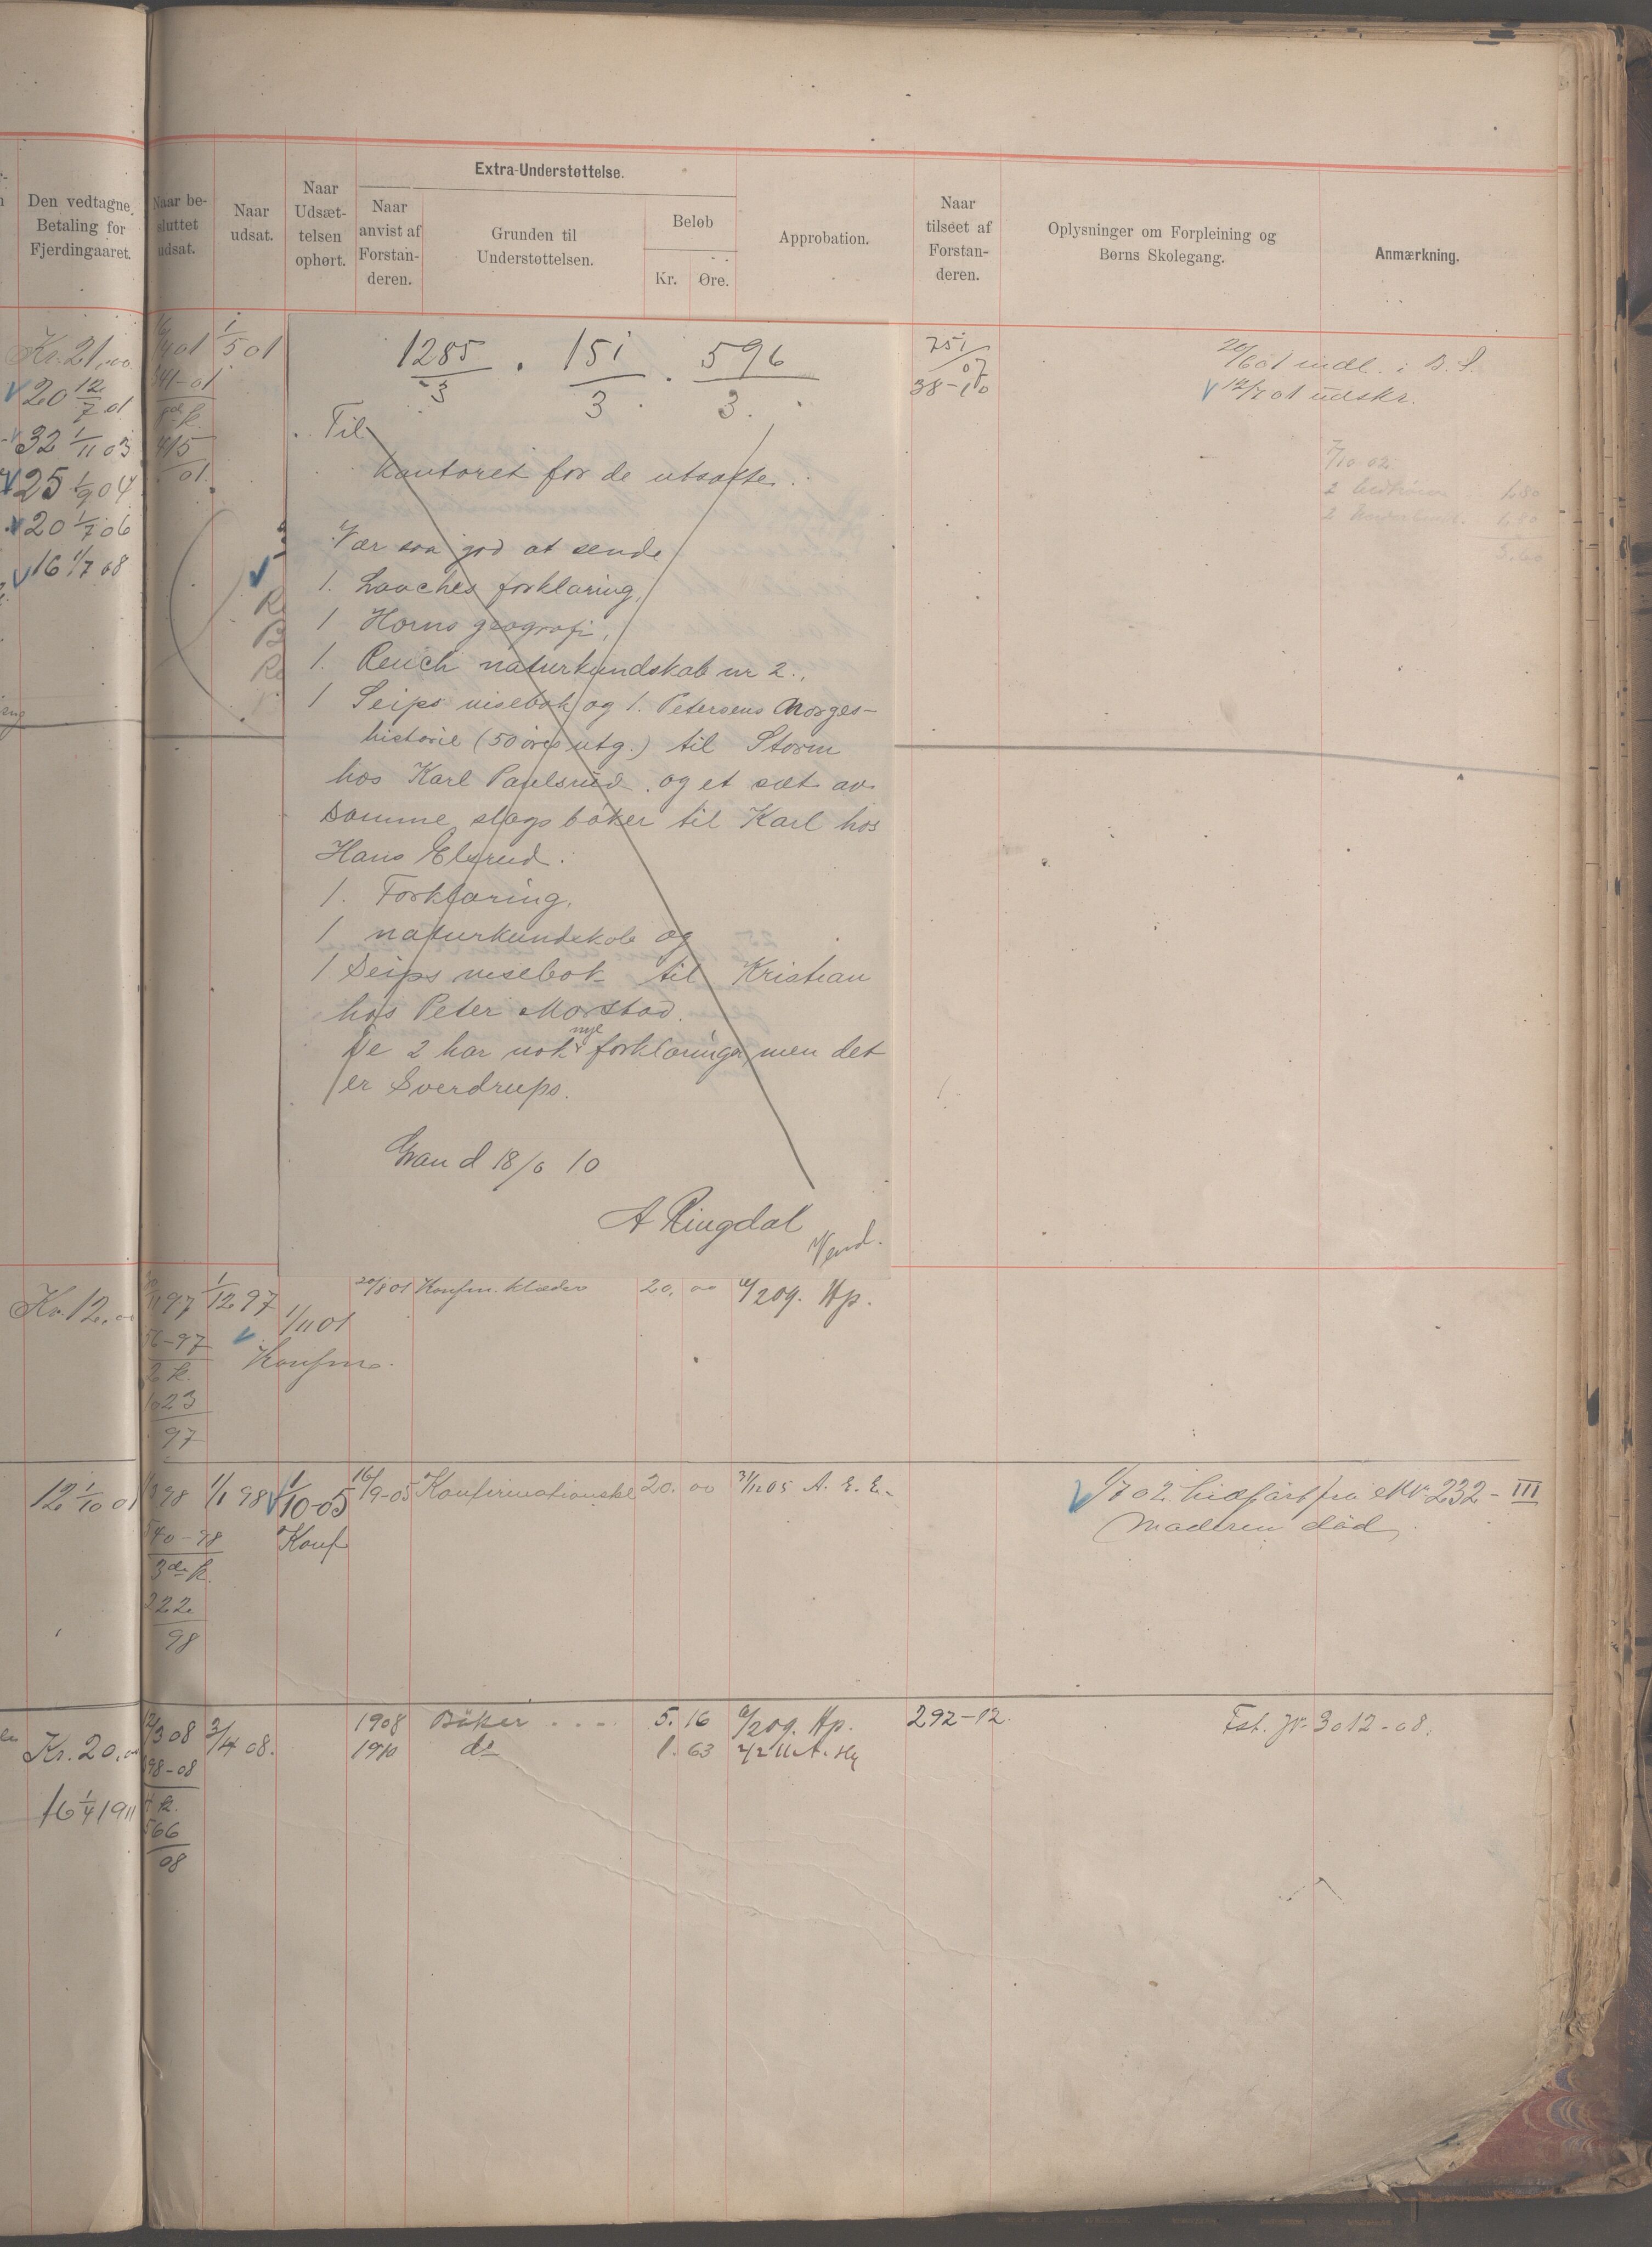 Den vedtagne
Betaling for
Fjerdingaaret.
Naar be-
sluttet
udsat.
Naar
udsat.
Naar
Udsæt-
telsen
ophørt.
Extra-Understøttelse.
Naar
anvist af
Forstan-
deren.
Grunden til
Understøttelsen.
Beløb
Kr. Øre.
Approbation.
Naar
tilseet af
Forstan-
deren.
Oplysninger om Forpleining og
Børns Skolegang.
Anmærkning.
Kr. 21,00
20 12/7 01
32 1/11 03
25 1/9 04
20 1/7 06
16 1/7 08
41-01
415
01.
1/5 01
1285/3 . 151/3 . 596/3.
Til
kontoret for de utsatte.
Vær saa god at sende
1. Laaches forklaring,
1 Horns geografi,
1. Reuch naturkundskab nr 2.,
1 Seips visebok og 1. Petersens Norges-
historie (50 øres utg.) til Storm
hos Karl Paulsrud. og et sæt av
samme slags bøker til Karl hos
Hans Elsrud.
1. Forklaring,
1 naturkundskab og
1 Seips visebok til Kristian
hos Peter Morstad.
De 2 har nok nye forklaringer, men det
er Sverdrups.
Grand 18/6 10
A Ringdal
Vend.
751/07
38-10
20/6 01 indl. i
12/7 01 udskr.
7/10 02.
2
2
Kr. 12,00
97
56-97
2 k.
1023
97
1/12 97
1/11 01
Konfirm.
20/8 01 Konfm. klæder 20, 00 4/2 09. Hp.
12 1/10 01
98
540-98
3die k.
222
98
1/1 98
1/10-05
Konf
16/9-05 Konfirmationskl 20. 00 31/12 05 A. E. E.
1/7 02 hidført fra No 232 - III
Moderen død.
Kr. 20,00
16 1/4 1911
12/3 08
98-08
k.
566
08
3/4 08.
1908 Bøker . . . . 5. 16 6/2 09. Hp.
1910 do 1. 63
292-12.
Fst. Jr. 3012-08.